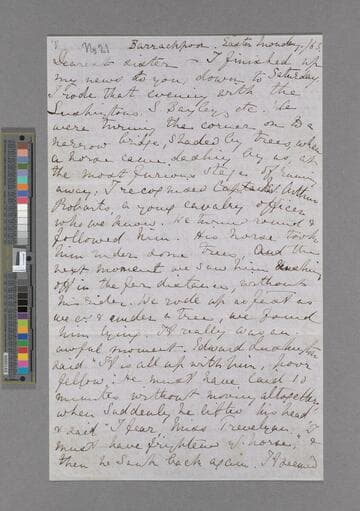 No 21 Barrackpoor. Easter Monday. /65
Dearest sister - I finished up
my news to you, down to Saturday
I rode that evening with the
Lushingtons. S. Bayley, etc. We
were turning the corner on to a
narrow bridge, shaded by trees, when
a horse came dashing by us, at
the most furious stage of runn
away; I recognised Captain Arthur
Roberts, a young cavalry officer
who we know. We turned round &
followed him. His horse took
him under some trees, and the
next moment we saw him dashing
off in the far distance, without
his rider. We rode up as fast as
we cd & under a tree, we found
him lying. It really was an
awful moment. Edward Lushington
said "It is all up with him, poor
fellow." He must have laid 10
minutes without moving altogether,
when suddenly he lifted his head
& said "I fear, Miss Trevelyan, I
must have frightened yr horse." &
then he sank back again. It seemed